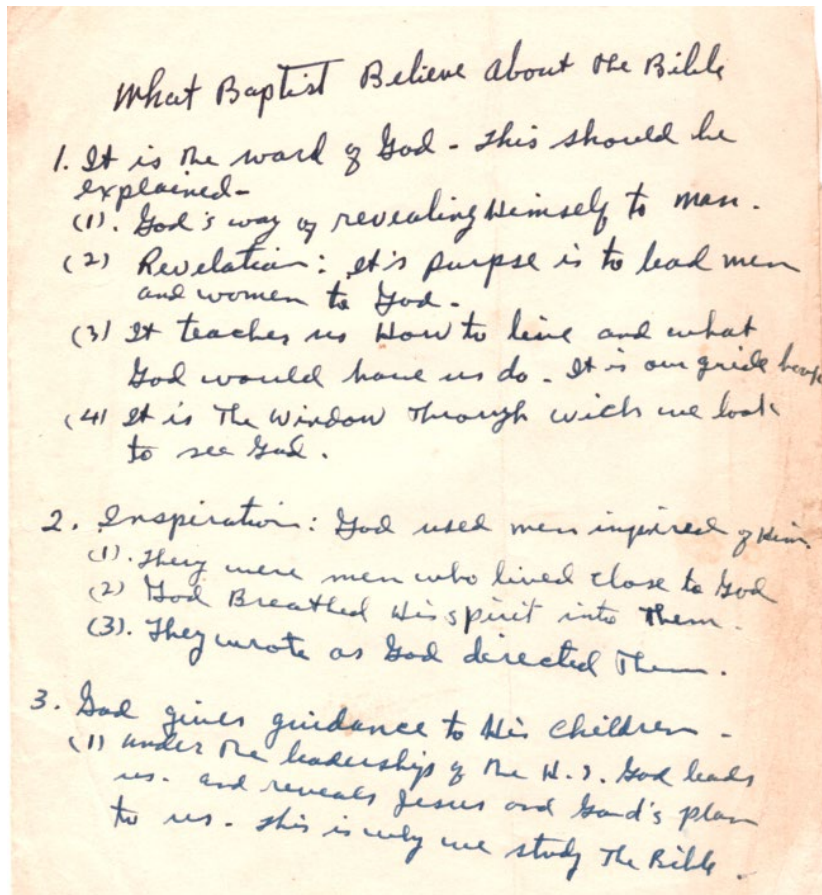 What Baptist Believe About the Bible
1. It is the word of God - This should be
explained -
(1). God's way of revealing Himself to man.
(2) Revelation: It's purpse is to lead men
and women to God.
(3) It teaches us How to live and what
God would have us do - It is our gride
(4) It is The Window Through wich we look
to see God.
2. Inspiration: God used men inpired of Him.
(1). They were men who lived close to God
(2) God Breathed His spirit into Them.
(3). They wrote as God derected Them.
3. God gives guidance to His children -
(1) under the leadership of the H.S. God leads
us. and reveals Jesus and God's plan
to us - This is why we study The Bible.